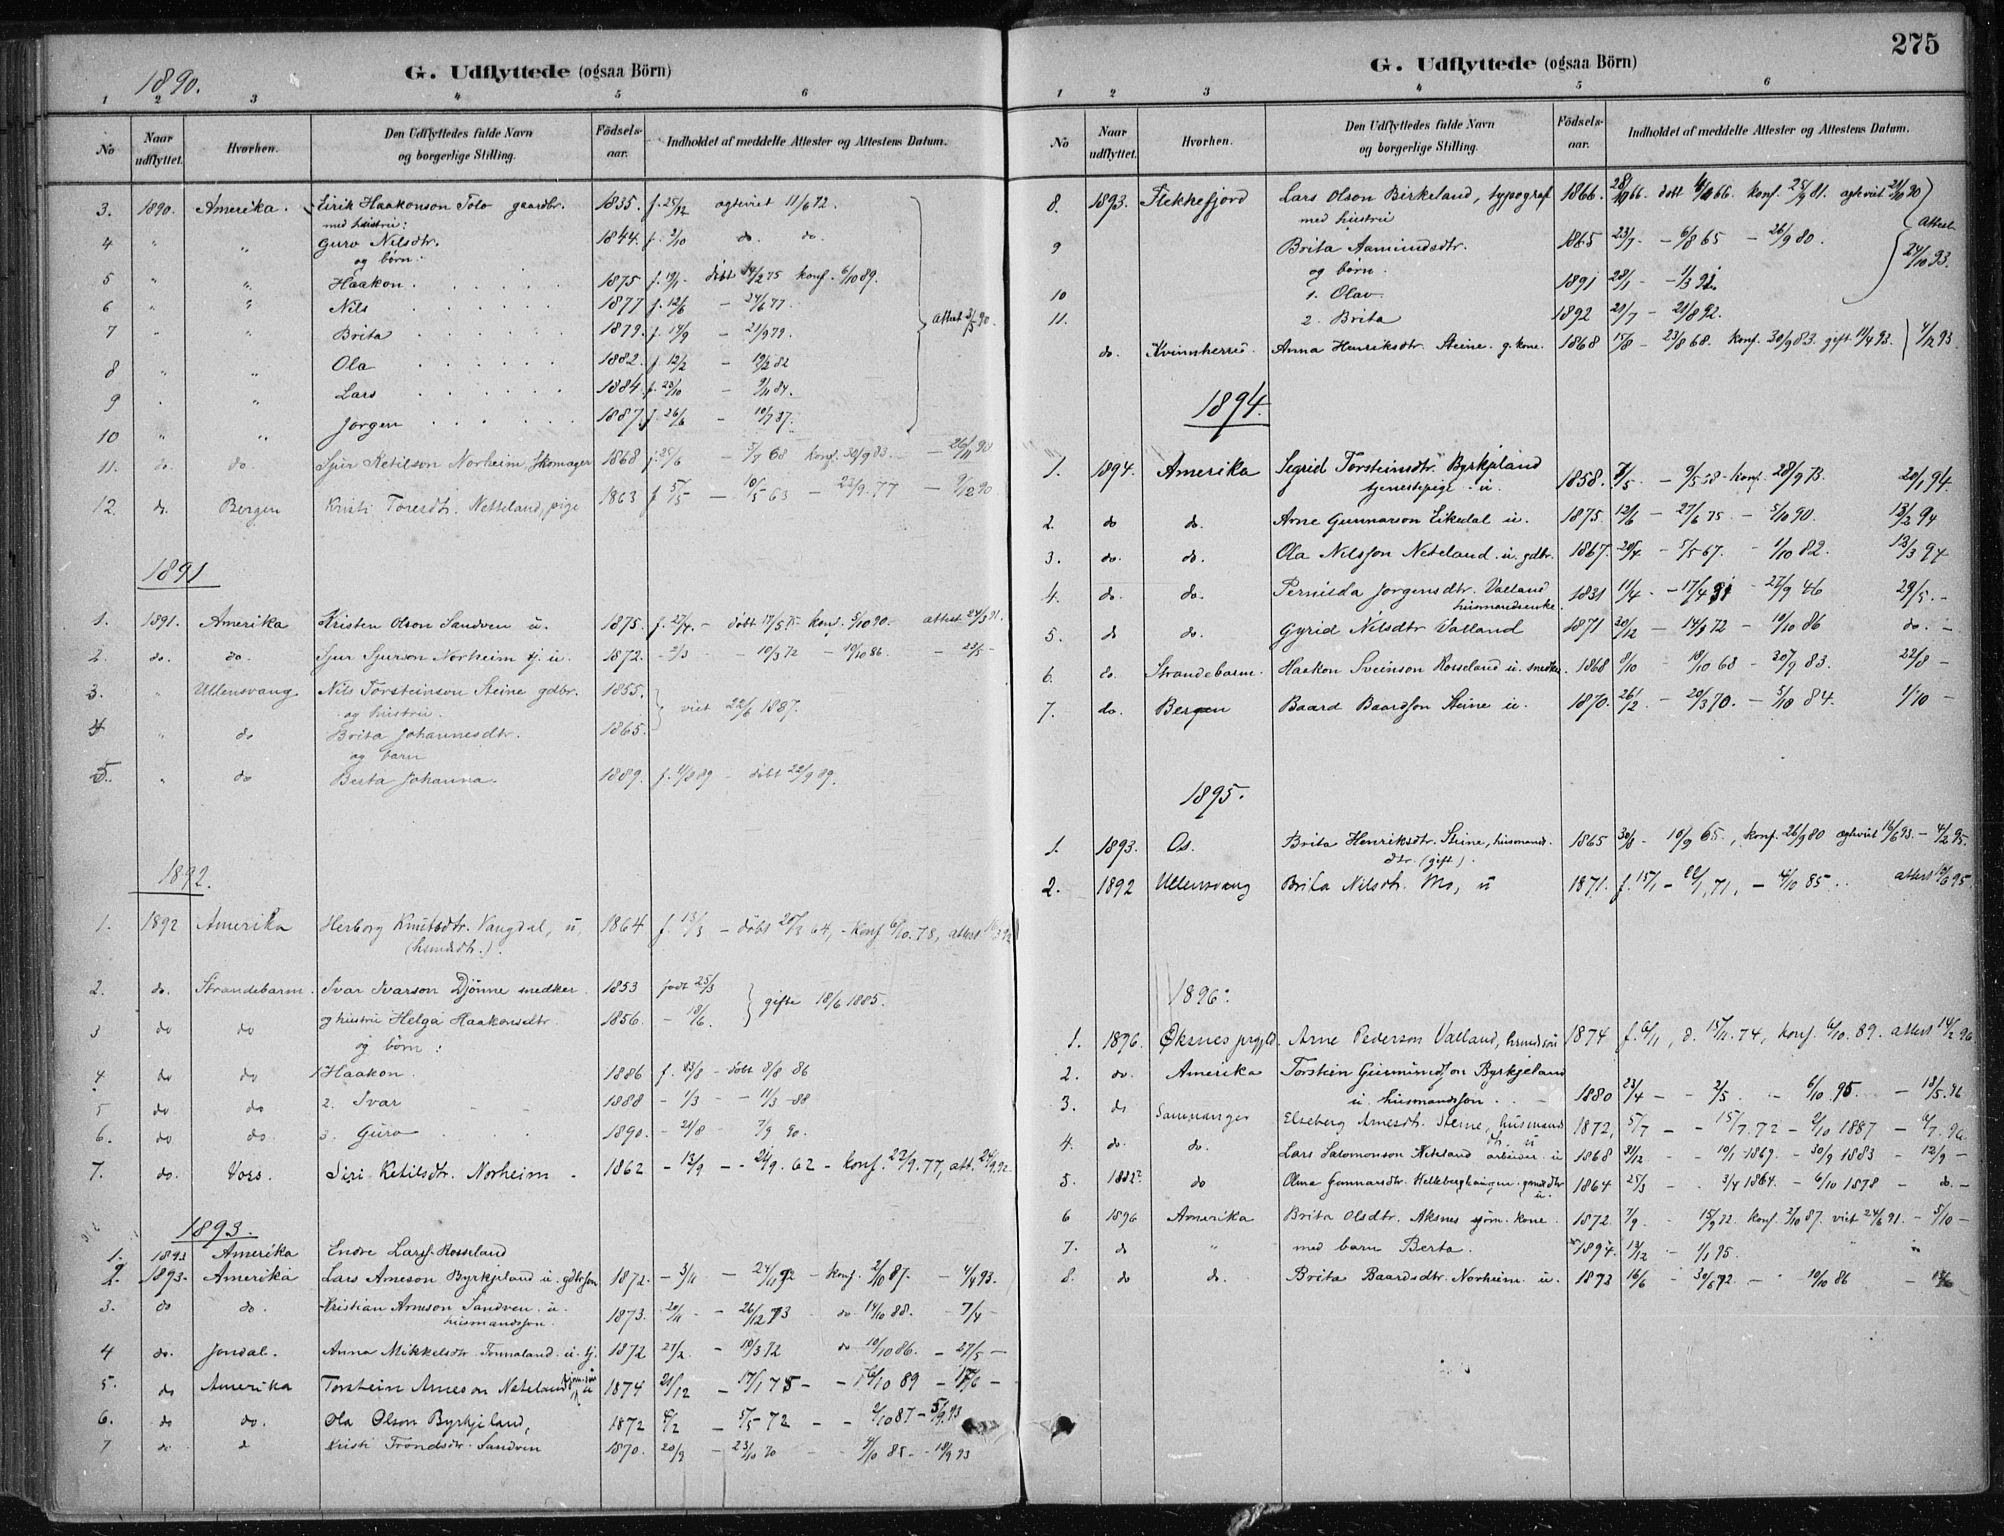 1890.
G. Udflyttede (ogsaa Börn)
1 2 3 4 5 6
No | Naar udflyttet. | Hvorhen. | Den Udflyttedes fulde Navn og borgerlige Stilling. | Födsels-aar. | Indholdet af meddelte Attester og Attestens Datum.
3. 1890. Amerika. Eirik Haakonson Tolo gaardbr. 1835. f. 25/12 agteviet 11/6 72.
med hustru:
4 " " Guro Nilsdtr. 1844. f. 2/10 do. do.
og børn:
5 " " Haakon 1875 f. 19/1 döbt 14/2 75 konf. 6/10 89.
6 " " Nils 1877 f. 12/6 – 24/6 77.
attest 3/5 90.
7 " " Brita 1879. f. 14/9 – 21/9 79.
8 " " Ola 1882. f. 12/2 – 19/2 82
9 " " Lars 1884. f. 23/10 – 9/11 84.
10 " " Jørgen 1887. f. 26/6 – 10/7 87.
11. do. do. Sjur Ketilson Norheim, Skomager 1868 f. 25/6 – 5/7 68 konf. 30/9 83. – 26/11 90
12. do. Bergen Kristi Toresdtr. Netteland, pige 1863 f. 5/5 – 10/5 63 – 23/9. 77 – 9/12 90
1891
1. 1891. Amerika Kristen Olson Sandven u. 1875. f. 27/4. – döbt 17/5 75 – konf. 5/10 90. attest 24/3 91.
2. do. do. Sjur Sjurson Norheim tj. u. 1872. – 2/3 – 10/3 72 – 10/10 86. – 22/5 –
3. " Ullensvang Nils Torsteinson Steine gdbr. 1855.
og hustru. viet 22/6 1887.
4 " do Brita Johannesdtr. 1865.
og barn
5. " do Berta Johanna. 1889. f. 11/8 89 – döbt 22/9 89.
1892.
1. 1892 Amerika Herborg Knutsdtr. Vangdal, u, 1864 f. 13/3 – döbt 20/3 64, – konf 6/10. 78, attest 16/3 92
(husmdtr.).
2. do. Strandebarm. Ivar Ivarson Djönne snedker 1853 födt 25/3
gifte 18/6 1885.
3 do do og hustru Helga Haakonsdtr. 1856. – 18/6.
og börn:
4 do do 1 Haakon 1886 f. 23/8 – döbt 8/8 86
5 do do 2. Ivar 1888 – 1/3 – 11/3 88
6. do do. 3. Guro 1890. – 21/8 – 7/9 90.
7. do. Voss. Siri Ketilsdtr. Norheim 1862 – 13/9 – 21/9. 62 – konf. 22/9. 77, att. 24/9 92
1893.
1. 1893 Amerika Endre Larss. Rosseland
2. 1893. Amerika Lars Arneson Byrkjeland u. gdbrson 1872. – 3/11 – 24/11 72 – konf. 2/10 87. – 4/4 93.
3. do do. Kristian Arneson Sandven. u. 1873. 20/11 – 26/12 73 do 14/10 88. – 7/4 –
husmandsson.
4 do. Jondal. Anna Mikkelsdtr. Tonnaland. u. tj. 1872 27/2. – 10/3 72 do 10/10 86. – 27/5 –
5. do Amerika Torstein Arneson Neteland u 1874 21/12 – 17/1 75 – – 6/10 89 – 17/6 –
6. do do. Ola Olson Byrkjeland, 1872 4/2 – 5/5 72 – – 2/10 87 – 5/9 93
7 do d Kristi Trondsdtr. Sandven 1870. 20/9 – 23/10 70 – – 4/10 85 – 18/9 93
275
G. Udflyttede (ogsaa Börn)
1 2 3 4 5 6
No | Naar udflyttet. | Hvorhen. | Den Udflyttedes fulde Navn og borgerlige Stilling. | Födsels-aar. | Indholdet af meddelte Attester og Attestens Datum.
8. 1893. Flekkefjord Lars Olson Birkeland, typograf 1866. 28/10 66 döbt 66. konf. 25/9 81. agteviet 21/10 90
med hustru
9 Brita Aamundsdtr. 1865 23/7 – 6/8 65 – 26/9 80.
attest 24/10 93.
og börn.
10 1. Olav. 1891 28/1 – 1/3 91.
11. 2. Brita 1892 21/7 – 21/8 92.
do. Kvinnherred. Anna Henriksdtr. Steine g. kone. 1868 15/8 – 23/8 68. konf. 30/9 83. gift 11/4 93. 4/12 93.
1894.
1. 1894. Amerika Segrid Torsteinsdtr. Byrkjeland 1858. 3/5 – 9/5 58 – konf. 28/9 73. 20/1 94.
tjenestepige. u.
2. do do. Arne Gunnarson Eikedal u. 1875. 12/6 – 27/6 75 – 5/10 90. 13/2 94
3. do. do. Ola Nilsson Neteland. u. gdbr. 1867. 20/4 – 5/5 67. – 1/10 82. 13/3 94
4. do. do. Pernilda Jorgensdtr. Vatland 1831 11/4 – 17/4 31 – 27/9 46 29/5. –
husmandsenke.
5. do do. Gyrid Nilsdtr Vatland 1871 30/12 – 14/3 72 – 10/10 86 do. –
6. do. Strandebarm. Haakon Sveinson Rosseland u. snedker. 1868 8/10 – 18/10 68 – 30/9 83. 22/8 –
7. do. Bergen Baard Baardson Steine u. 1870. 26/2 – 20/3 70. – 5/10 84. 1/10 –
1895.
1. 1893. Os. Brita Henriksdtr. Steine, husmand. 1865 30/8 – 10/9 65., konf. 26/9 80 agteviet 16/6 93. – 4/2 95.
dtr. (gift).
2. 1892 Ullensvang Brita Nilsdtr. Mo, u 1871. f. 15/1 – 22/1, 71, – 4/10 85. attest 10/6 95.
1896.
1. 1896. Øksnes prgjld. Arne Pederson Vatland, husmdsön 1874 f. 6/11, d. 15/11. 74, konf. 6/10. 89. attest 14/2 96
2. do. Amerika Torstein Gudmundson Byrkjeland
u. husmandsson. 1880 23/4 – 2/5 " – 6/10 95. – 18/5. 96
3. do Samnanger Elseberg Arnesdtr. Steine, husmand 1872, 5/7 – – 15/7. 72 – 2/10 1887 – 6/7. 96.
dtr. u
4. do. do. Lars Salomonson Neteland arbeider. u 1868 31/12 – 10/1 1869. – 30/9 1883 – 12/9 –
5. 1882? do Olina Gunnarsdtr. Helleberghaugen. 1864 25/3 – . 3/4 1864. – 6/10 1878 – do. –
u.
6 1896 Amerika Brita Olsdtr. Aksnes sjöm. kone. 1872. 7/9. – 15/9 72. konf. 2/10 87. viet 24/6 91. – 5/10 –
7. do " med barn Berta. 1894. 19/12 – 1/1 95. " "
8. do do. Brita Baardsdtr. Norheim. u. 1873 16/6 – 30/6 72. – 10/10 86